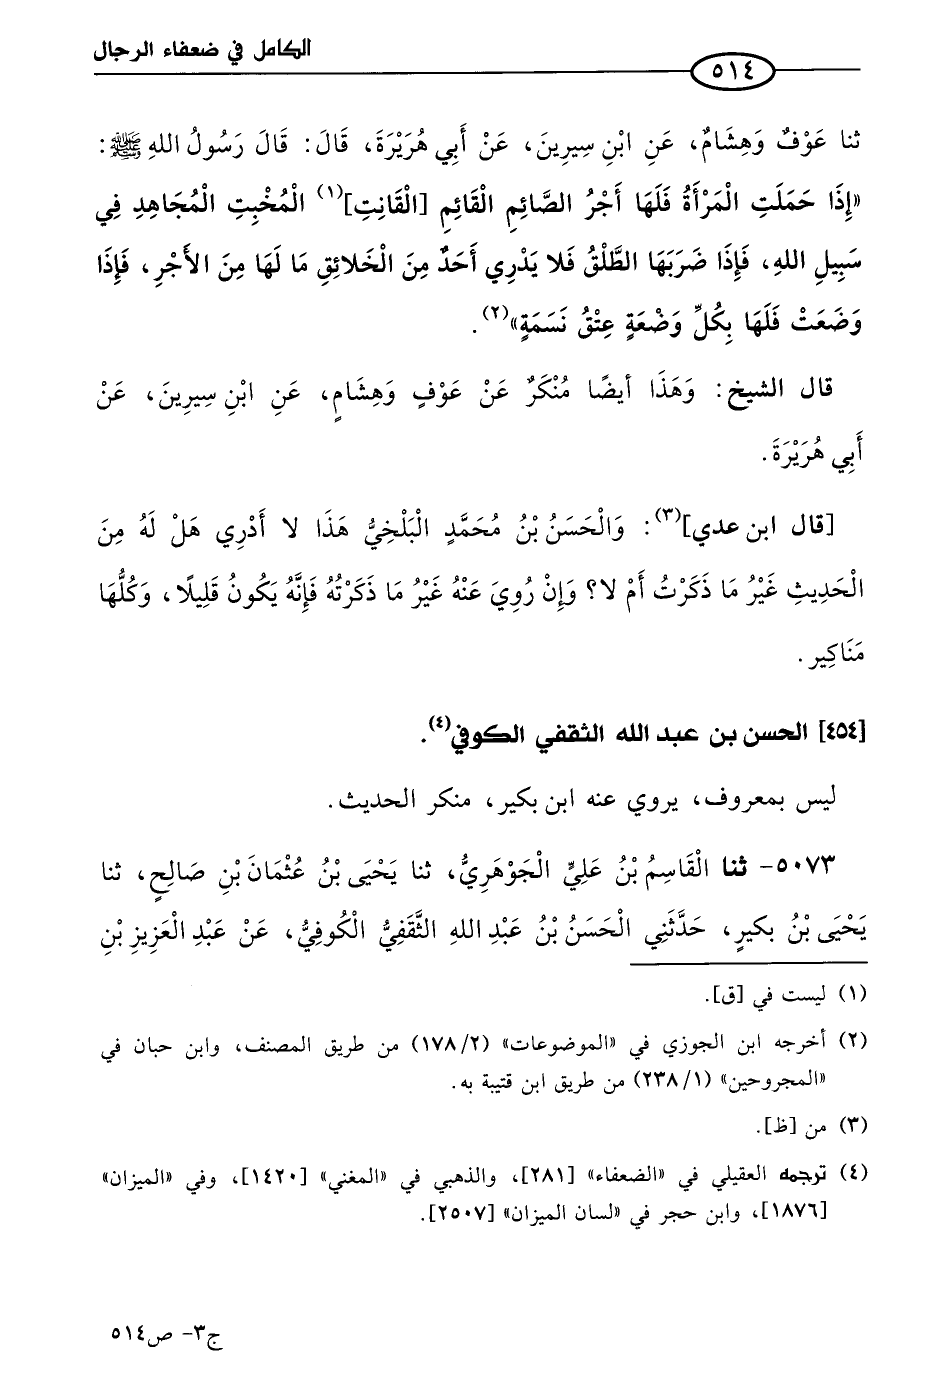 الكامل في ضعفاء الرجال
٥١٤
ثنا عَوْفٌ وَهِشَامٌ، عَنِ ابْنِ سِيرِينَ، عَنْ أَبِي هُرَيْرَةَ، قَالَ: قَالَ رَسُولُ اللهِ ﷺ:
«إِذَا حَمَلَتِ الْمَرْأَةُ فَلَهَا أَجْرُ الصَّائِمِ الْقَائِمِ [الْقَانِتِ](١) الْمُخْبِتِ الْمُجَاهِدِ فِي
سَبِيلِ اللهِ، فَإِذَا ضَرَبَهَا الطَّلْقُ فَلا يَدْرِي أَحَدٌ مِنَ الْخَلائِقِ مَا لَهَا مِنَ الأَجْرِ، فَإِذَا
وَضَعَتْ فَلَهَا بِكُلِّ وَضْعَةٍ عِتْقُ نَسَمَةٍ»(٢).
قال الشيخ: وَهَذَا أيضًا مُنْكَرٌ عَنْ عَوْفٍ وَهِشَامٍ، عَنِ ابْنِ سِيرِينَ، عَنْ
أَبِي هُرَيْرَةَ.
[قال ابن عدي](٣): وَالْحَسَنُ بْنُ مُحَمَّدٍ الْبَلْخِيُّ هَذَا لا أَدْرِي هَلْ لَهُ مِنَ
الْحَدِيثِ غَيْرُ مَا ذَكَرْتُ أَمْ لا؟ وَإِنْ رُوِيَ عَنْهُ غَيْرُ مَا ذَكَرْتُهُ فَإِنَّهُ يَكُونُ قَلِيلًا، وَكُلُّهَا
مَنَاكِير.
[٤٥٤] الحسن بن عبد الله الثقفي الكوفي(٤).
ليس بمعروف، يروي عنه ابن بكير، منكر الحديث.
٥٠٧٣- ثنا الْقَاسِمُ بْنُ عَلِيٍّ الْجَوْهَرِيُّ، ثنا يَحْيَى بْنُ عُثْمَانَ بْنِ صَالِحٍ، ثنا
يَحْيَى بْنُ بكيرٍ، حَدَّثَنِي الْحَسَنُ بْنُ عَبْدِ اللهِ الثَّقَفِيُّ الْكُوفِيُّ، عَنْ عَبْدِ الْعَزِيزِ بْنِ
(١) ليست في [ق].
(٢) أخرجه ابن الجوزي في «الموضوعات» (١٧٨/٢) من طريق المصنف، وابن حبان في
«المجروحين» (٢٣٨/١) من طريق ابن قتيبة به.
(٣) من [ظ].
(٤) ترجمه العقيلي في «الضعفاء» [٢٨١]، والذهبي في «المغني» [١٤٢٠]، وفي «الميزان»
[١٨٧٦]، وابن حجر في «لسان الميزان» [٢٥٠٧].
ج٣- ص٥١٤